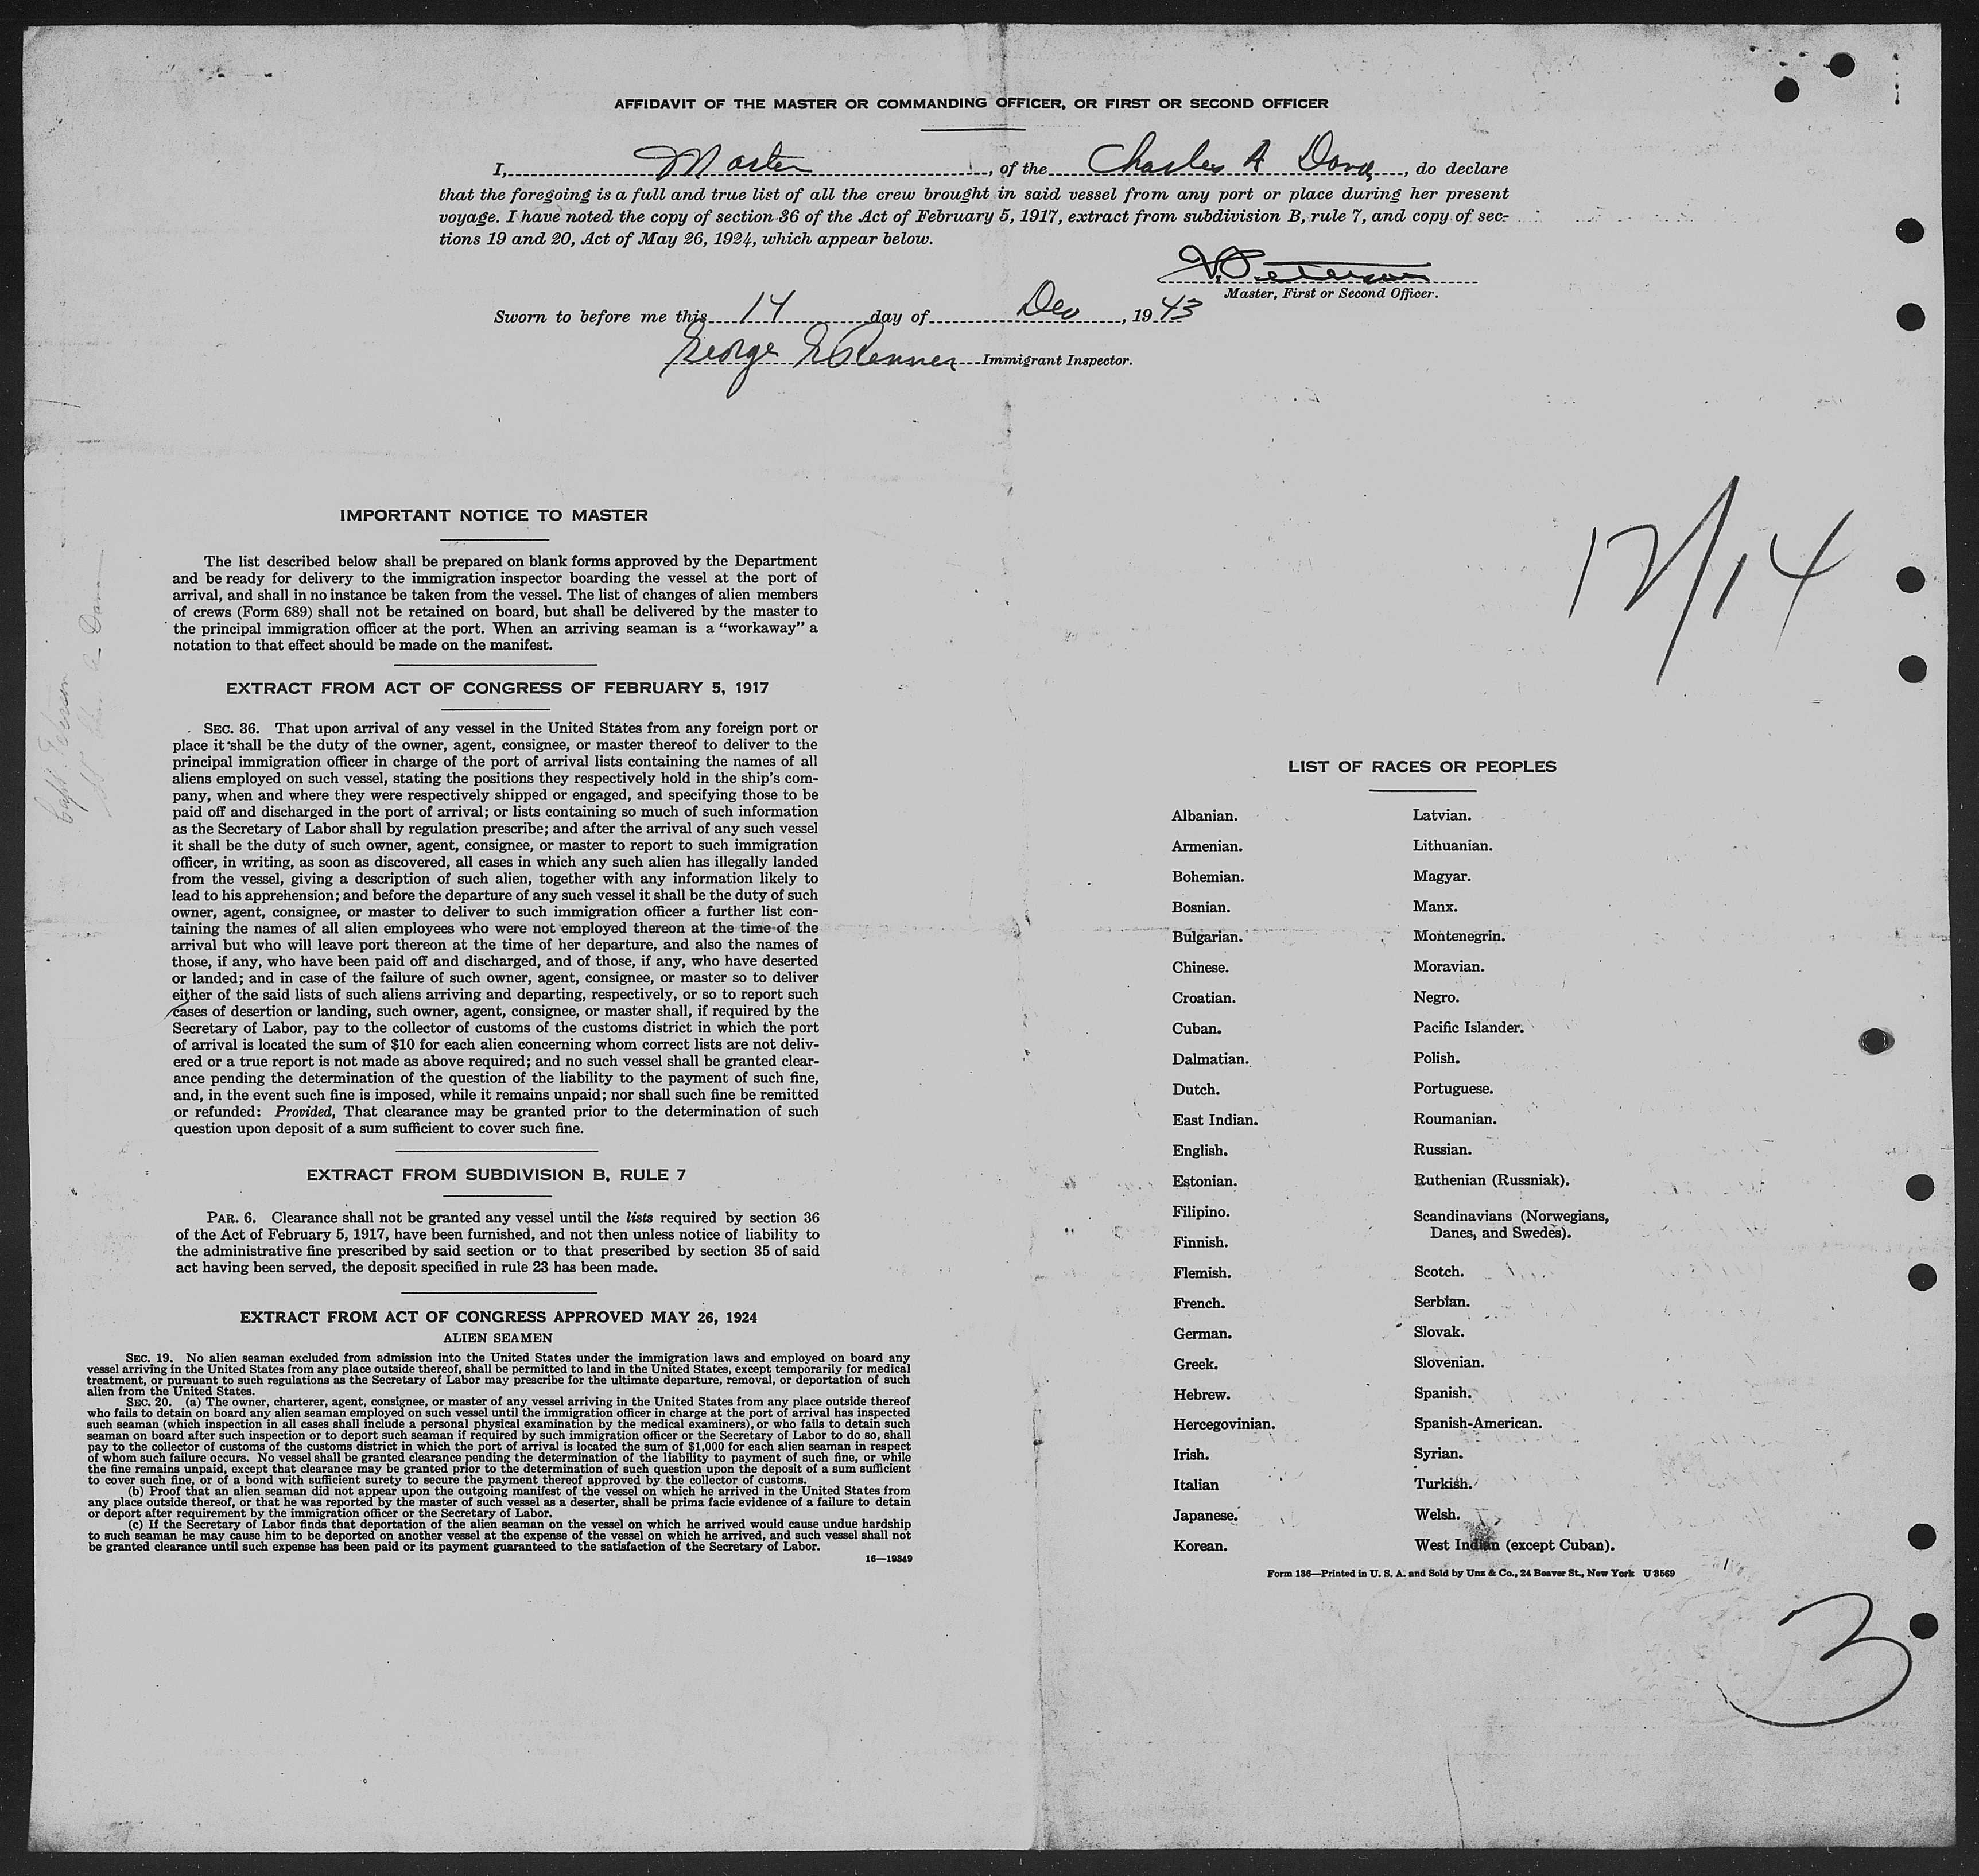 AFFIDAVIT OF THE MASTER OR COMMANDING OFFICER, OR FIRST OR SECOND OFFICER
I, Master, of the Charles A Dana, do declare
that the foregoing is a full and true list of all the crew brought in said vessel from any port or place during her present
voyage. I have noted the copy of section 36 of the Act of February 5, 1917, extract from subdivision B, rule 7, and copy of sec-
tions 19 and 20, Act of May 26, 1924, which appear below.
Peterson
Master, First or Second Officer.
Sworn to before me this 14 day of Dec, 1943
George Renner Immigrant Inspector.
12/14
IMPORTANT NOTICE TO MASTER
The list described below shall be prepared on blank forms approved by the Department
and be ready for delivery to the immigration inspector boarding the vessel at the port of
arrival, and shall in no instance be taken from the vessel. The list of changes of alien members
of crews (Form 689) shall not be retained on board, but shall be delivered by the master to
the principal immigration officer at the port. When an arriving seaman is a "workaway" a
notation to that effect should be made on the manifest.
EXTRACT FROM ACT OF CONGRESS OF FEBRUARY 5, 1917
SEC. 36. That upon arrival of any vessel in the United States from any foreign port or
place it shall be the duty of the owner, agent, consignee, or master thereof to deliver to the
principal immigration officer in charge of the port of arrival lists containing the names of all
aliens employed on such vessel, stating the positions they respectively hold in the ship's com-
pany, when and where they were respectively shipped or engaged, and specifying those to be
paid off and discharged in the port of arrival; or lists containing so much of such information
as the Secretary of Labor shall by regulation prescribe; and after the arrival of any such vessel
it shall be the duty of such owner, agent, consignee, or master to report to such immigration
officer, in writing, as soon as discovered, all cases in which any such alien has illegally landed
from the vessel, giving a description of such alien, together with any information likely to
lead to his apprehension; and before the departure of any such vessel it shall be the duty of such
owner, agent, consignee, or master to deliver to such immigration officer a further list con-
taining the names of all alien employees who were not employed thereon at the time of the
arrival but who will leave port thereon at the time of her departure, and also the names of
those, if any, who have been paid off and discharged, and of those, if any, who have deserted
or landed; and in case of the failure of such owner, agent, consignee, or master so to deliver
either of the said lists of such aliens arriving and departing, respectively, or so to report such
cases of desertion or landing, such owner, agent, consignee, or master shall, if required by the
Secretary of Labor, pay to the collector of customs of the customs district in which the port
of arrival is located the sum of $10 for each alien concerning whom correct lists are not deliv-
ered or a true report is not made as above required; and no such vessel shall be granted clear-
ance pending the determination of the question of the liability to the payment of such fine,
and, in the event such fine is imposed, while it remains unpaid; nor shall such fine be remitted
or refunded: Provided, That clearance may be granted prior to the determination of such
question upon deposit of a sum sufficient to cover such fine.
EXTRACT FROM SUBDIVISION B, RULE 7
PAR. 6. Clearance shall not be granted any vessel until the lists required by section 36
of the Act of February 5, 1917, have been furnished, and not then unless notice of liability to
the administrative fine prescribed by said section or to that prescribed by section 35 of said
act having been served, the deposit specified in rule 23 has been made.
EXTRACT FROM ACT OF CONGRESS APPROVED MAY 26, 1924
ALIEN SEAMEN
SEC. 19. No alien seaman excluded from admission into the United States under the immigration laws and employed on board any
vessel arriving in the United States from any place outside thereof, shall be permitted to land in the United States, except temporarily for medical
treatment, or pursuant to such regulations as the Secretary of Labor may prescribe for the ultimate departure, removal, or deportation of such
alien from the United States.
SEC. 20. (a) The owner, charterer, agent, consignee, or master of any vessel arriving in the United States from any place outside thereof
who fails to detain on board any alien seaman employed on such vessel until the immigration officer in charge at the port of arrival has inspected
such seaman (which inspection in all cases shall include a personal physical examination by the medical examiners), or who fails to detain such
seaman on board after such inspection or to deport such seaman if required by such immigration officer or the Secretary of Labor to do so, shall
pay to the collector of customs of the customs district in which the port of arrival is located the sum of $1,000 for each alien seaman in respect
of whom such failure occurs. No vessel shall be granted clearance pending the determination of the liability to payment of such fine, or while
the fine remains unpaid, except that clearance may be granted prior to the determination of such question upon the deposit of a sum sufficient
to cover such fine, or of a bond with sufficient surety to secure the payment thereof approved by the collector of customs.
(b) Proof that an alien seaman did not appear upon the outgoing manifest of the vessel on which he arrived in the United States from
any place outside thereof, or that he was reported by the master of such vessel as a deserter, shall be prima facie evidence of a failure to detain
or deport after requirement by the immigration officer or the Secretary of Labor.
(c) If the Secretary of Labor finds that deportation of the alien seaman on the vessel on which he arrived would cause undue hardship
to such seaman he may cause him to be deported on another vessel at the expense of the vessel on which he arrived, and such vessel shall not
be granted clearance until such expense has been paid or its payment guaranteed to the satisfaction of the Secretary of Labor.
16—19349
LIST OF RACES OR PEOPLES
Albanian.
Armenian.
Bohemian.
Bosnian.
Bulgarian.
Chinese.
Croatian.
Cuban.
Dalmatian.
Dutch.
East Indian.
English.
Estonian.
Filipino.
Finnish.
Flemish.
French.
German.
Greek.
Hebrew.
Hercegovinian.
Irish.
Italian
Japanese.
Korean.
Latvian.
Lithuanian.
Magyar.
Manx.
Montenegrin.
Moravian.
Negro.
Pacific Islander.
Polish.
Portuguese.
Roumanian.
Russian.
Ruthenian (Russniak).
Scandinavians (Norwegians,
Danes, and Swedes).
Scotch.
Serbian.
Slovak.
Slovenian.
Spanish.
Spanish-American.
Syrian.
Turkish.
Welsh.
West Indian (except Cuban).
Form 136—Printed in U. S. A. and Sold by Unz & Co., 24 Beaver St., New York U 3569
3